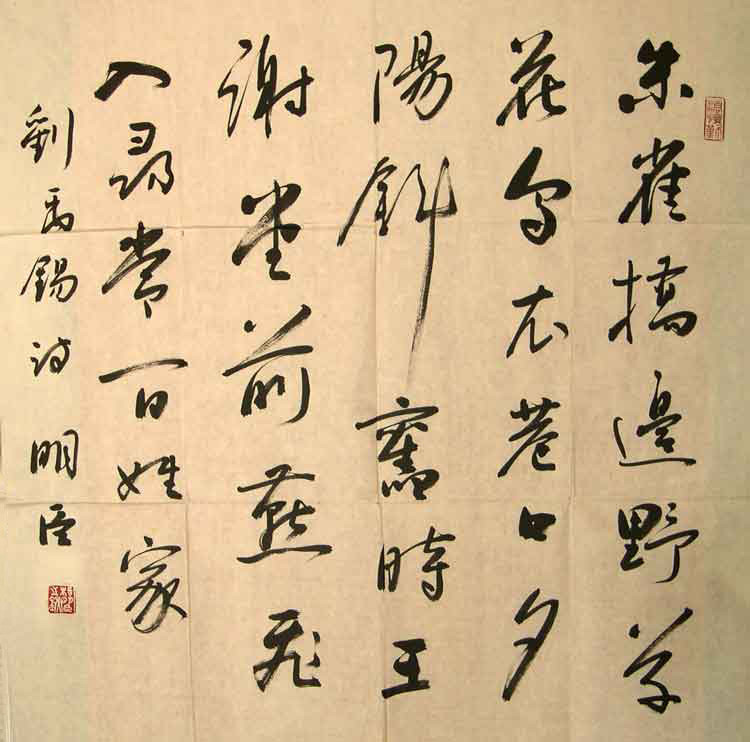 朱雀橋邊野草
花烏衣巷口夕
陽斜舊時王
謝堂前燕飛
入尋常百姓家
劉禹錫詩 明臣